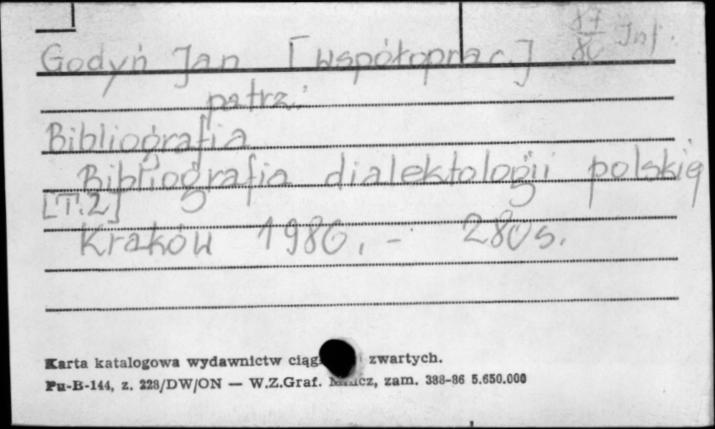 87
80 Inf.
Godyń Jan [współoprac.]
patrz:
Bibliografia
Bibliografia dialektologii polskiej
[T.2]
Kraków 1986. - 280 s.
Karta katalogowa wydawnictw zwartych.
Pu-B-144, z. 228/DW/ON — W.Z.Graf. zam. 388-86 5.650.000